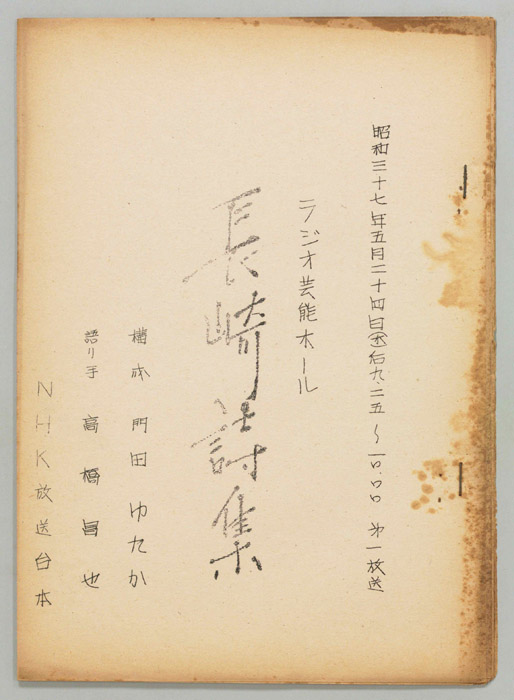 昭和三十七年五月二十四日㊍后九.二五〜一〇.〇〇 第一放送
ラジオ芸能ホール
長崎詩集
構成 門田ゆたか
語り手 高橋昌也
NHK放送台本